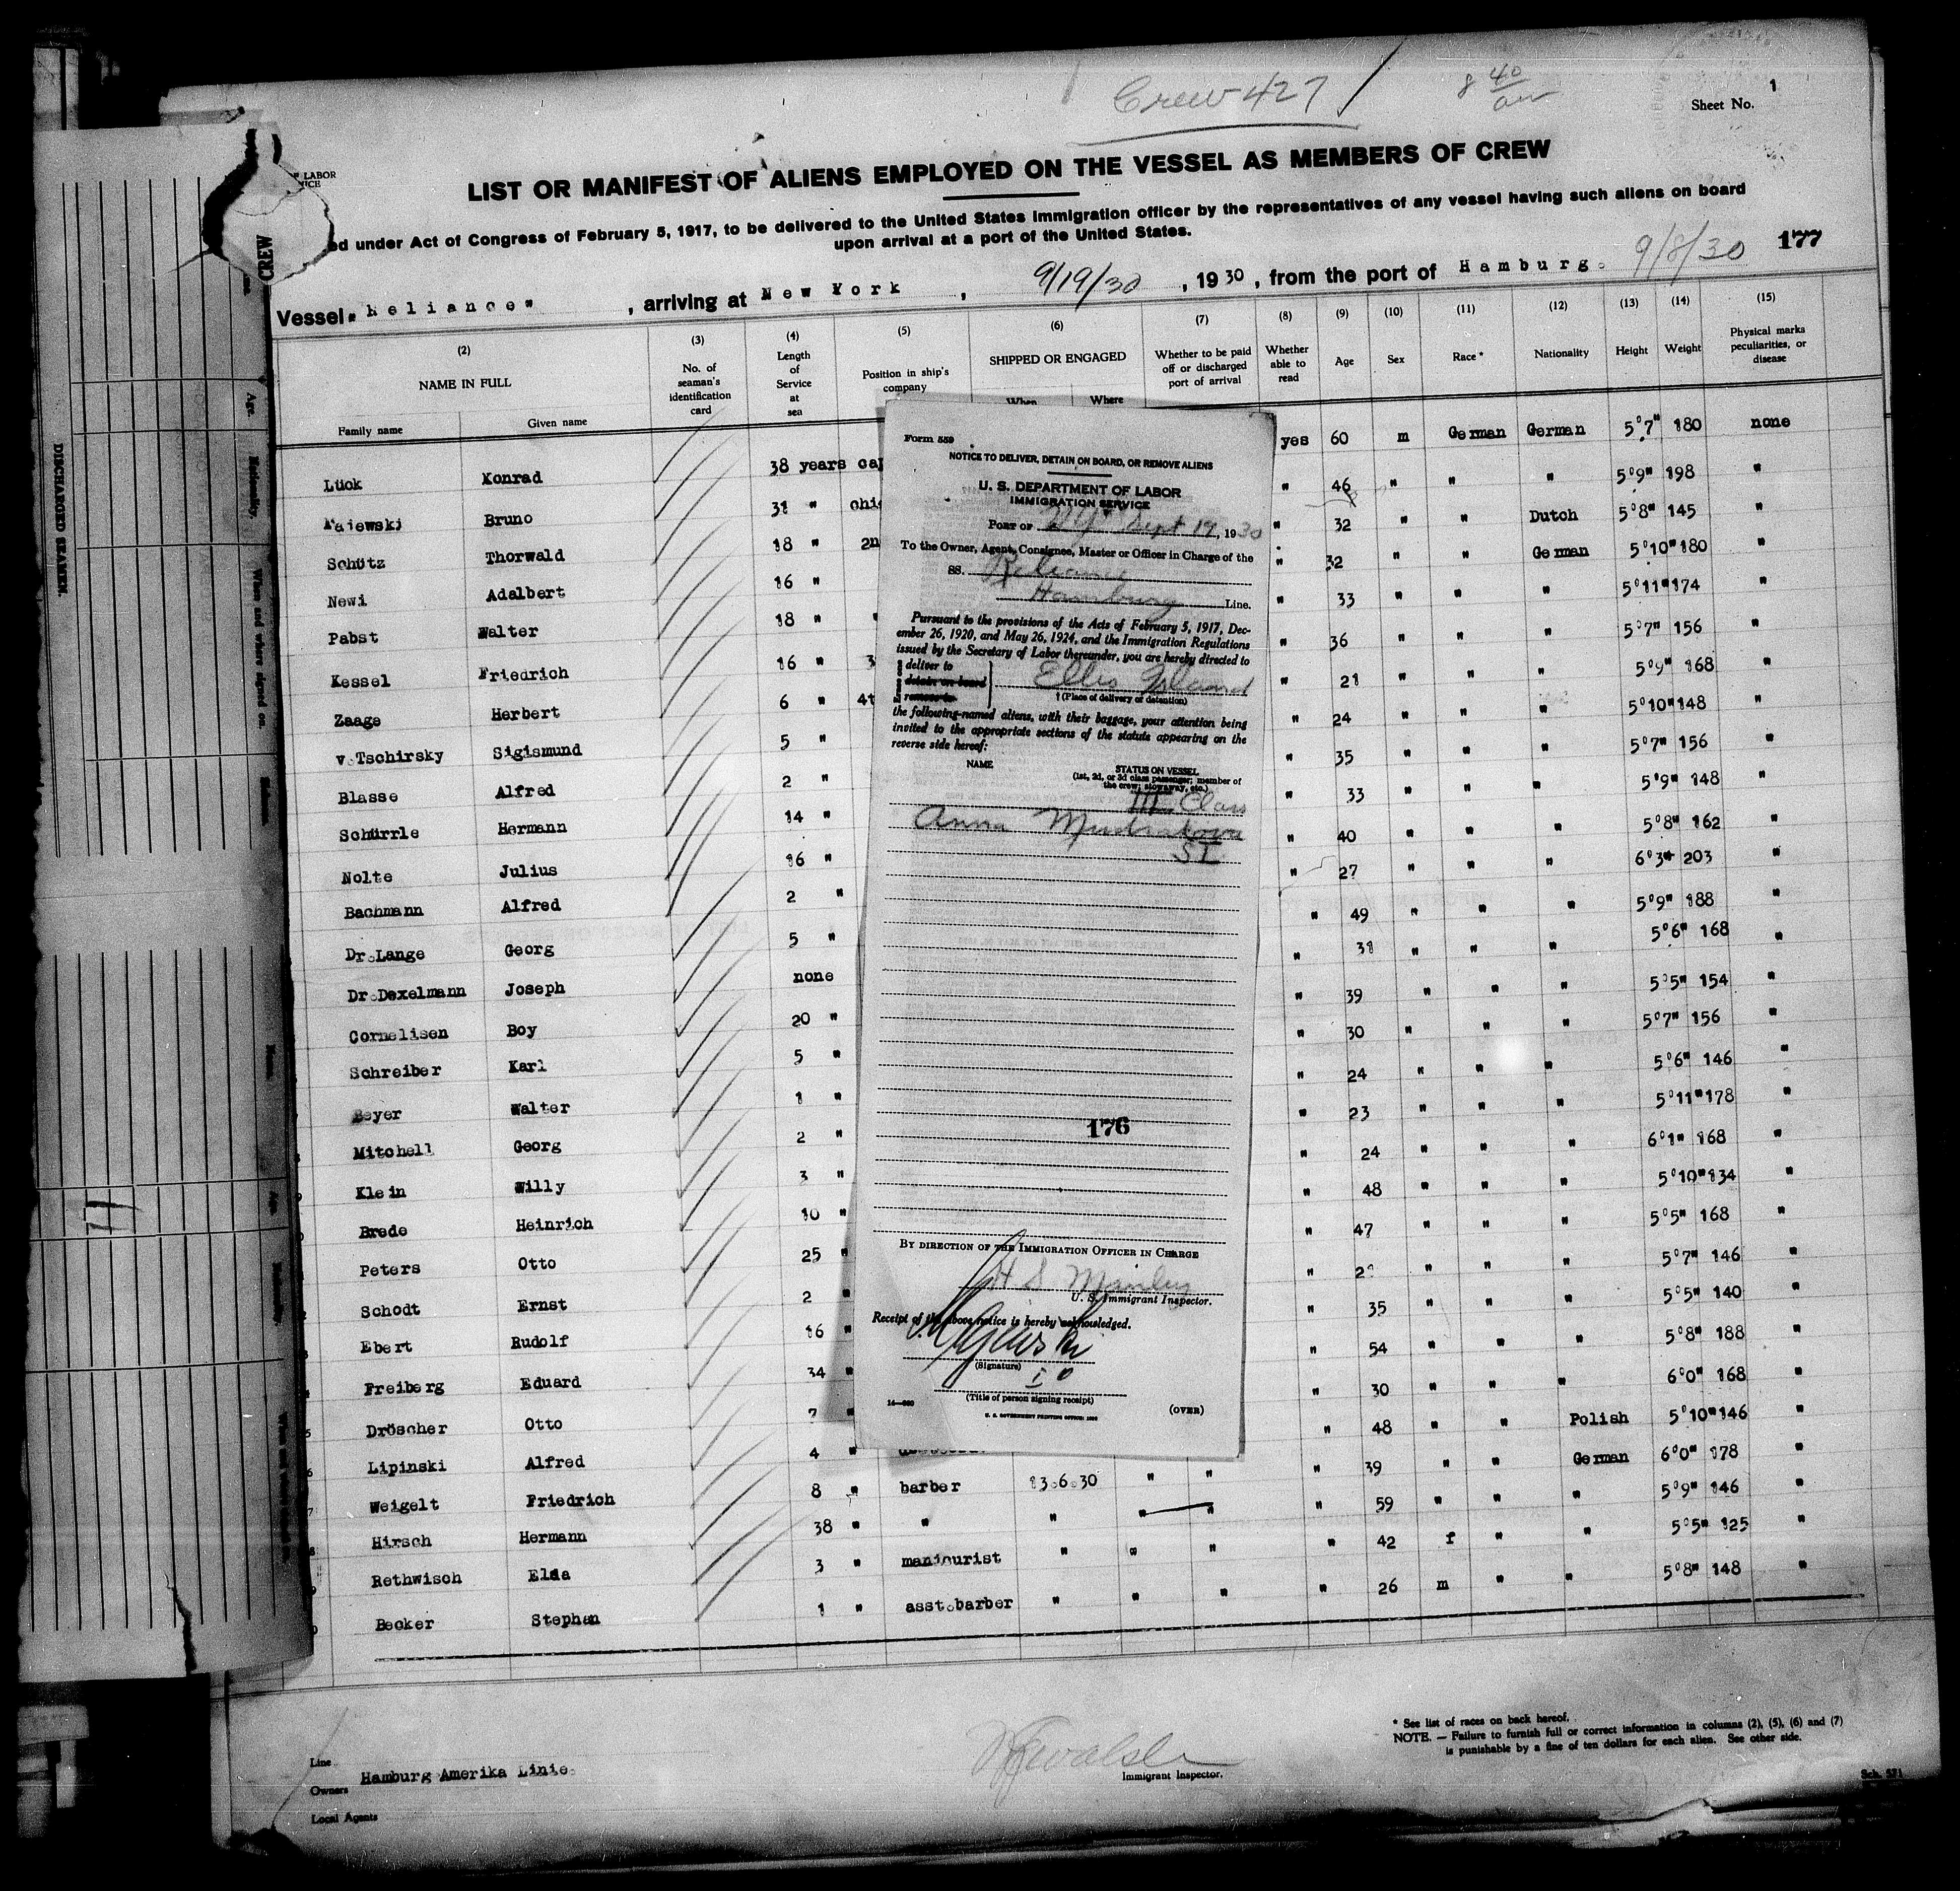 Crew 427
8 40/am
Sheet No. 1
LABOR
LIST OR MANIFEST OF ALIENS EMPLOYED ON THE VESSEL AS MEMBERS OF CREW
under Act of Congress of February 5, 1917, to be delivered to the United States Immigration officer by the representatives of any vessel having such aliens on board
upon arrival at a port of the United States.
177
Vessel "Reliance", arriving at New York, 9/19/30, 1930, from the port of Hamburg. 9/8/30
(2) (3) (4) (5) (6) (7) (8) (9) (10) (11) (12) (13) (14) (15)
NAME IN FULL
Family name Given name
No. of seaman's identification card
Length of Service at sea
Position in ship's company
SHIPPED OR ENGAGED
When Where
Whether to be paid off or discharged port of arrival
Whether able to read
Age
Sex
Race *
Nationality
Height
Weight
Physical marks peculiarities, or disease
Lück Konrad 38 years yes 60 m German German 5°7" 180 none
Bruno 31 " " 46 " " " 5°9" 198 "
Schütz Thorwald 18 " " 32 " " Dutch 5°8" 145 "
Newi Adalbert 16 " " 32 " " German 5°10" 180 "
Pabst Walter 18 " " 33 " " " 5°11" 174 "
Kessel Friedrich 16 " " 36 " " " 5°7" 156 "
Zaage Herbert 6 " " 21 " " " 5°9" 168 "
v.Tschirsky Sigismund 5 " " 24 " " " 5°10" 148 "
Blasse Alfred 2 " " 35 " " " 5°7" 156 "
Schürrle Hermann 14 " " 33 " " " 5°9" 148 "
Nolte Julius 16 " " 40 " " " 5°8" 162 "
Bachmann Alfred 2 " " 27 " " " 6°3" 203 "
Dr.Lange Georg 5 " " 49 " " " 5°9" 188 "
Dr.Dexelmann Joseph none " 31 " " " 5°6" 168 "
Cornelisen Boy 20 " " 39 " " " 5°5" 154 "
Schreiber Karl 5 " " 30 " " " 5°7" 156 "
Beyer Walter 1 " " 24 " " " 5°6" 146 "
Mitchell Georg 2 " " 23 " " " 5°11" 178 "
Klein Willy 3 " " 24 " " " 6°1" 168 "
Brede Heinrich 10 " " 48 " " " 5°10" 134 "
Peters Otto 25 " " 47 " " " 5°5" 168 "
Schodt Ernst 2 " " " " " 5°7" 146 "
Ebert Rudolf 16 " " 35 " " " 5°5" 140 "
Freiberg Eduard 34 " " 54 " " " 5°8" 188 "
Dröscher Otto 7 " " 30 " " " 6°0" 168 "
Lipinski Alfred 4 " " 48 " " Polish 5°10" 146 "
Weigelt Friedrich 8 " barber 13.6.30 " " " 39 " " German 6°0" 178 "
Hirsch Hermann 38 " " " " " " 59 " " " 5°9" 146 "
Rethwisch Elda 3 " manicurist " " " " 42 f " " 5°5" 125 "
Becker Stephan 1 " asst.barber " " " " 26 m " " 5°8" 148 "
Form 559
NOTICE TO DELIVER, DETAIN ON BOARD, OR REMOVE ALIENS
U. S. DEPARTMENT OF LABOR
IMMIGRATION SERVICE
PORT OF N.Y. Sept 19, 1930
To the Owner, Agent, Consignee, Master or Officer in Charge of the
SS. Reliance
Hamburg Line.
Pursuant to the provisions of the Acts of February 5, 1917, Dec-
ember 26, 1920, and May 26, 1924, and the Immigration Regulations
issued by the Secretary of Labor thereunder, you are hereby directed to
deliver to
detain on board
remove to
Ellis Island
† (Place of delivery or detention)
the following-named aliens, with their baggage, your attention being
invited to the appropriate sections of the statute appearing on the
reverse side hereof:
NAME
STATUS ON VESSEL
(1st, 2d, or 3d class passenger; member of
the crew; stowaway, etc.)
III Class
Anna
SI
176
BY DIRECTION OF THE IMMIGRATION OFFICER IN CHARGE
U. S. Immigrant Inspector.
Receipt of the above notice is hereby acknowledged.
(Signature)
(Title of person signing receipt)
(OVER)
U. S. GOVERNMENT PRINTING OFFICE
DISCHARGED SEAMEN.
Age.
Nationality.
When and where signed on.
CREW
Line
Owners Hamburg Amerika Linie.
Local Agents
Immigrant Inspector.
* See list of races on back hereof.
NOTE. — Failure to furnish full or correct information in columns (2), (5), (6) and (7)
is punishable by a fine of ten dollars for each alien. See other side.